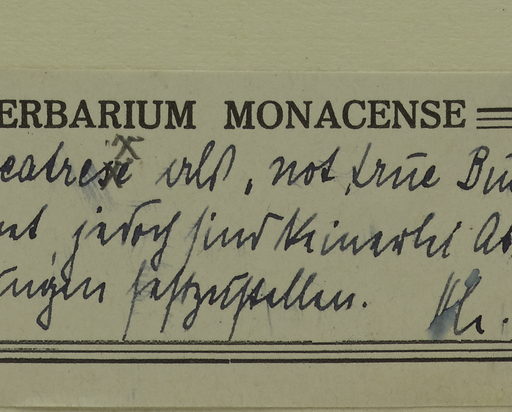 ERBARIUM MONACENSE
eatrex als „not true Bu
net, jedoch sind keinerlei Ab
ungen festzustellen.